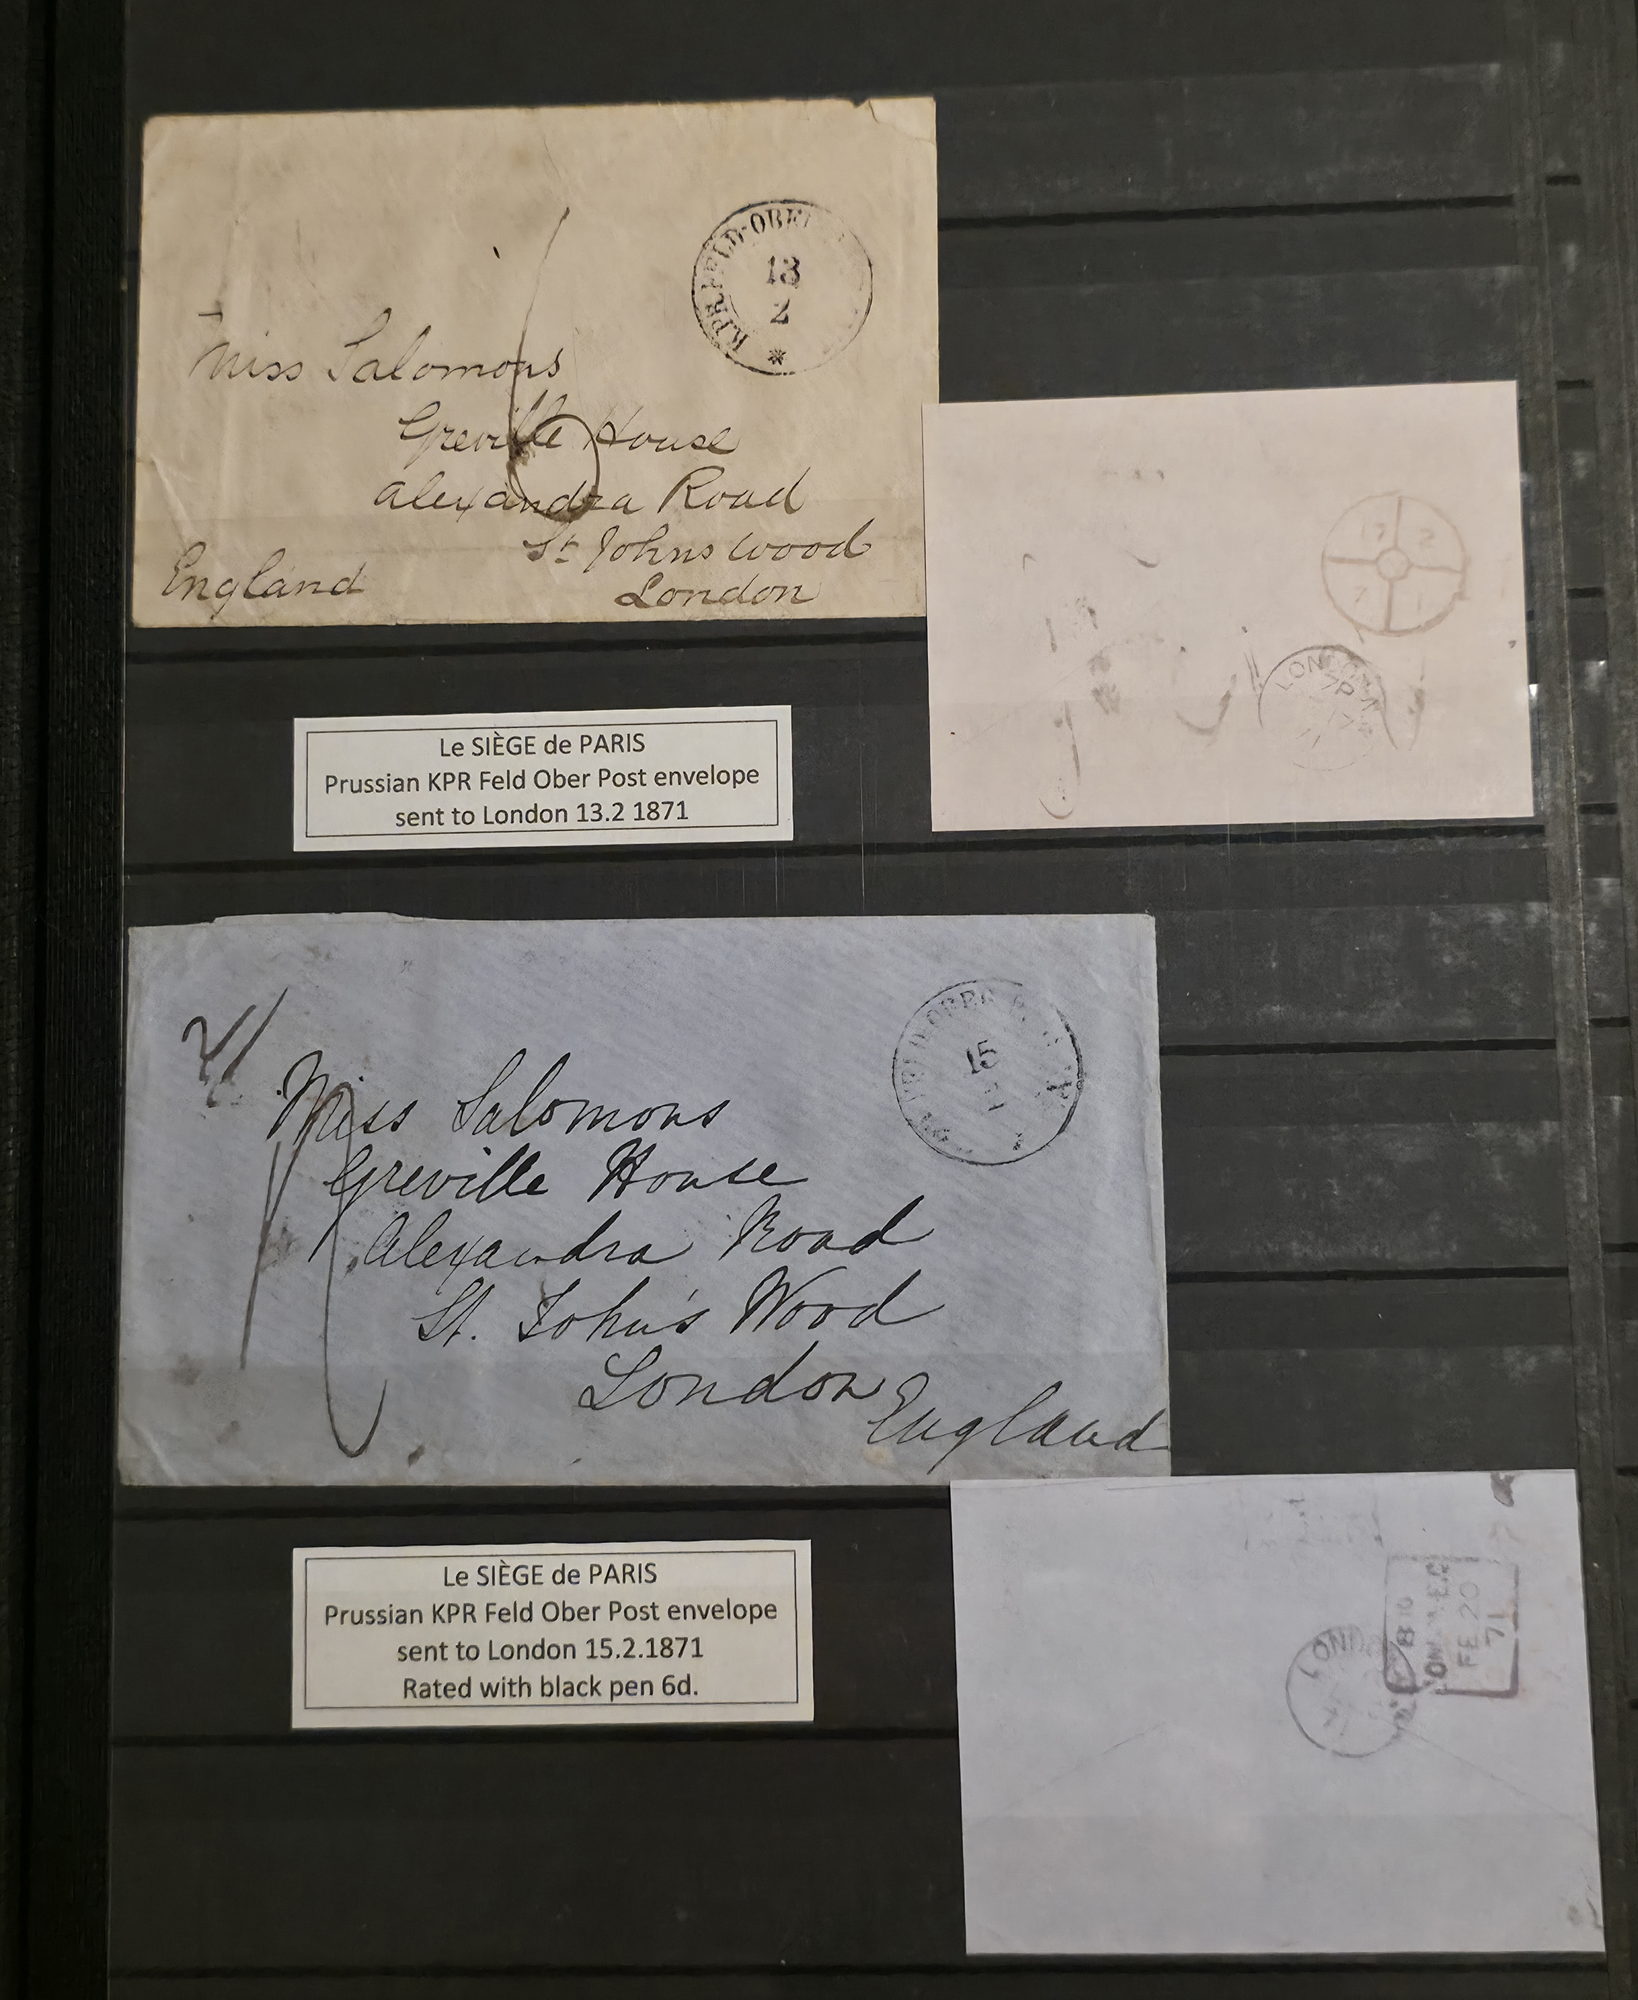 KPR.FELD-OBER
13
2
6
Miss Salomons
Greville House
Alexandra Road
St Johns Wood
London
England
17 2
7 1
LONDON
7P
Le SIÈGE de PARIS
Prussian KPR Feld Ober Post envelope
sent to London 13.2 1871
15
2/
Miss Salomons
Greville House
Alexandra Road
St. John's Wood
London
England
Le SIÈGE de PARIS
Prussian KPR Feld Ober Post envelope
sent to London 15.2.1871
Rated with black pen 6d.
FE 20
71